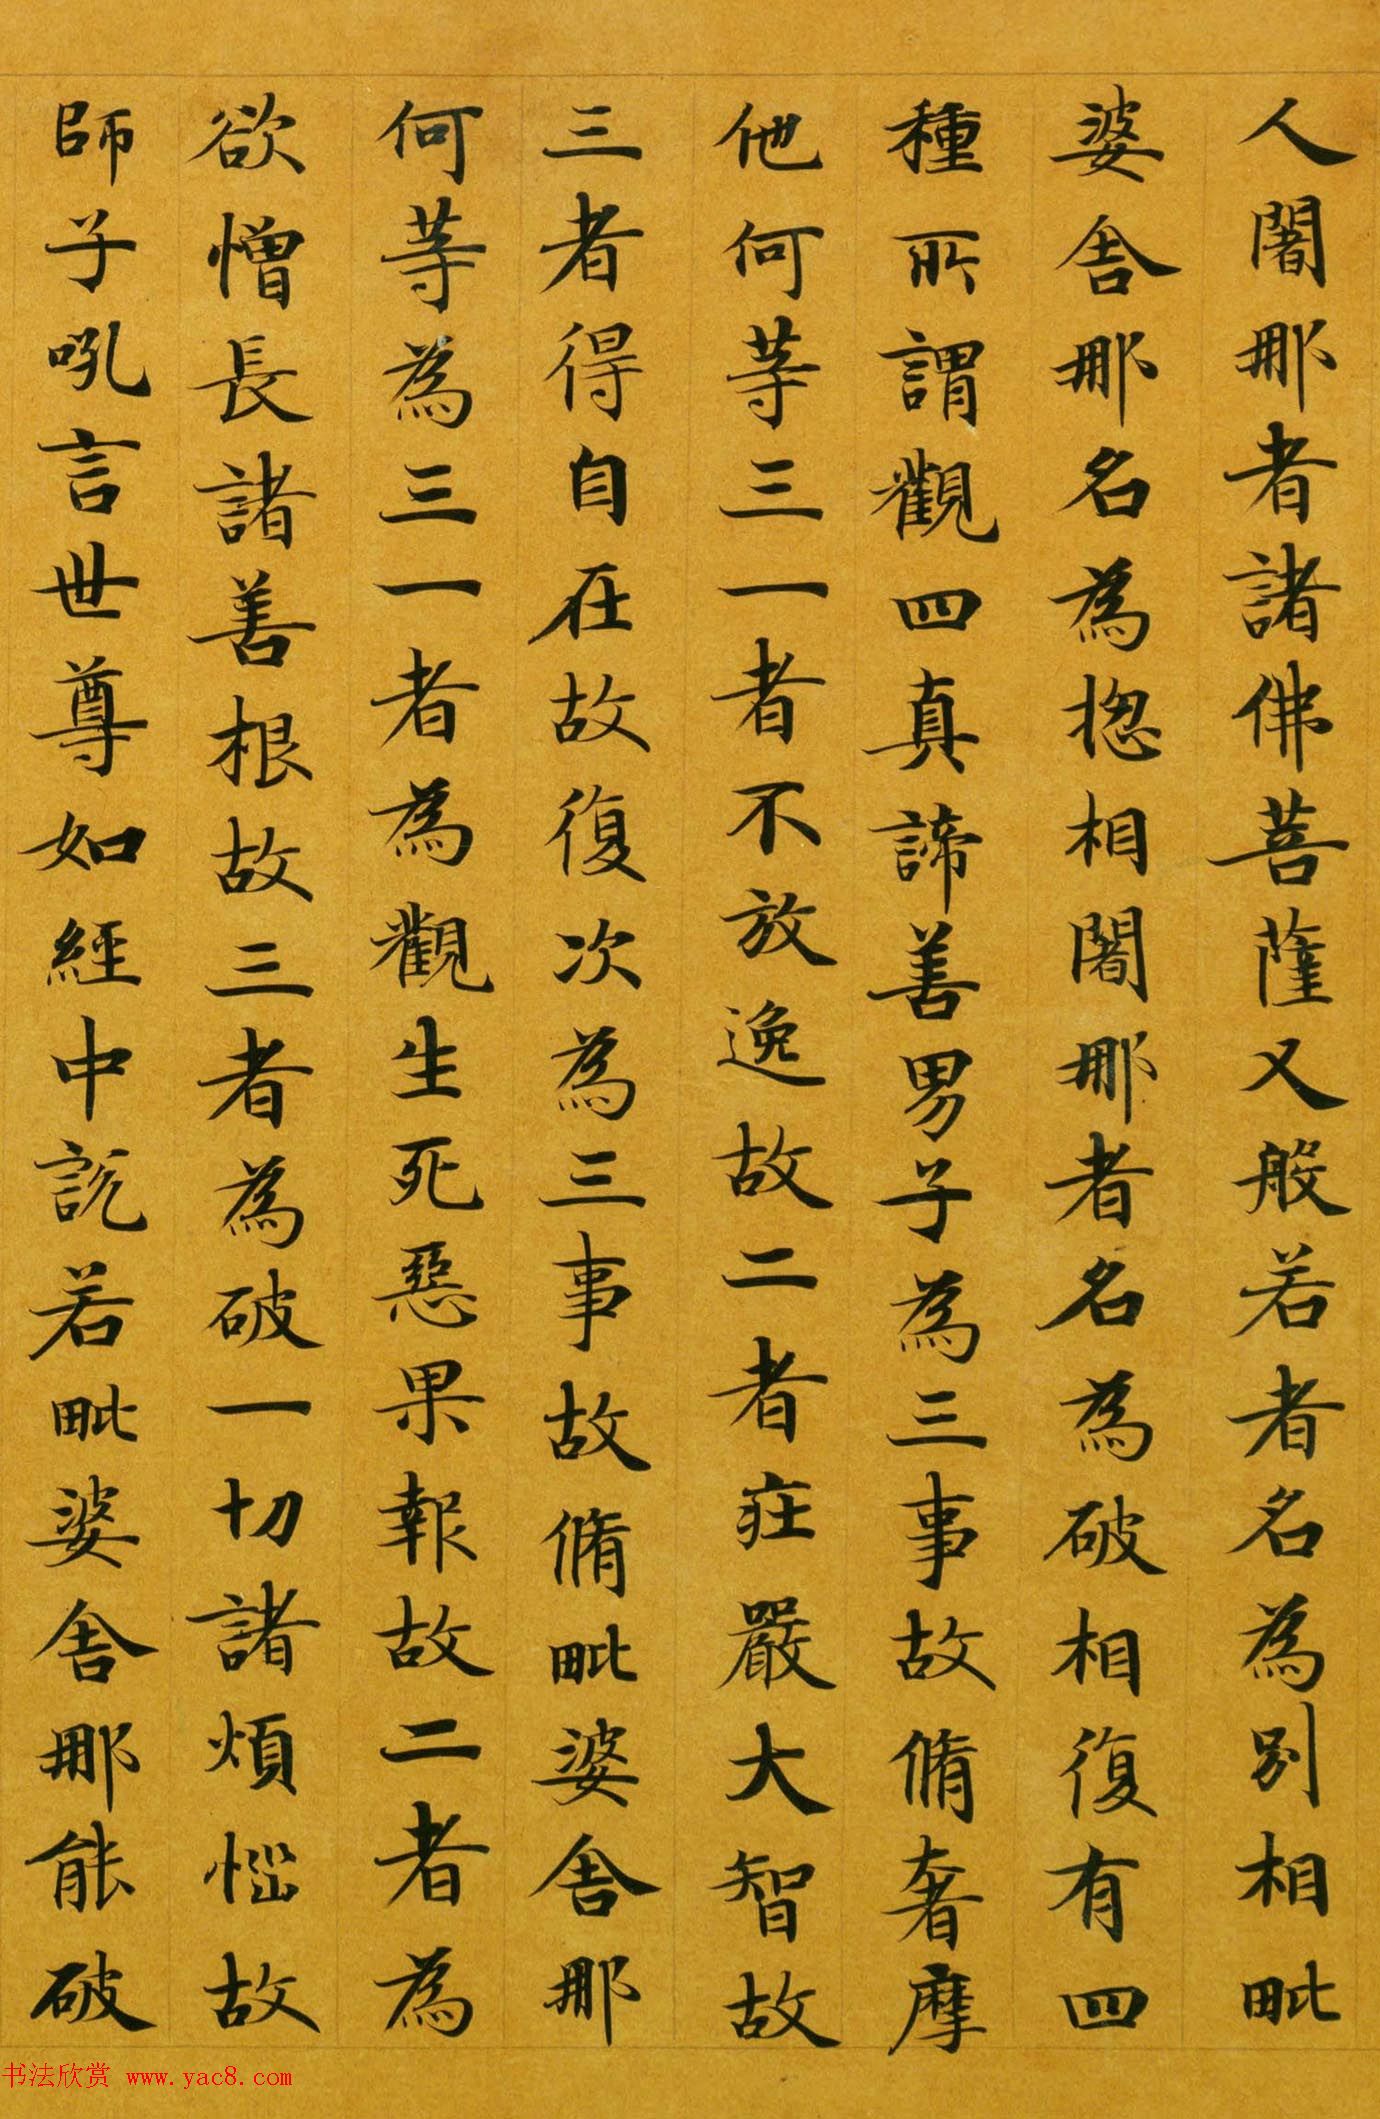 人闍那者諸佛菩薩又般若者名為別相毗
婆舍那名為揔相闍那者名為破相復有四
種所謂觀四真諦善男子為三事故脩奢摩
他何等三一者不放逸故二者莊嚴大智故
三者得自在故復次為三事故脩毗婆舍那
何等為三一者為觀生死惡果報故二者為
欲憎長諸善根故三者為破一切諸煩惱故
師子吼言世尊如經中說若毗婆舍那能破
书法欣赏 www.yac8.com